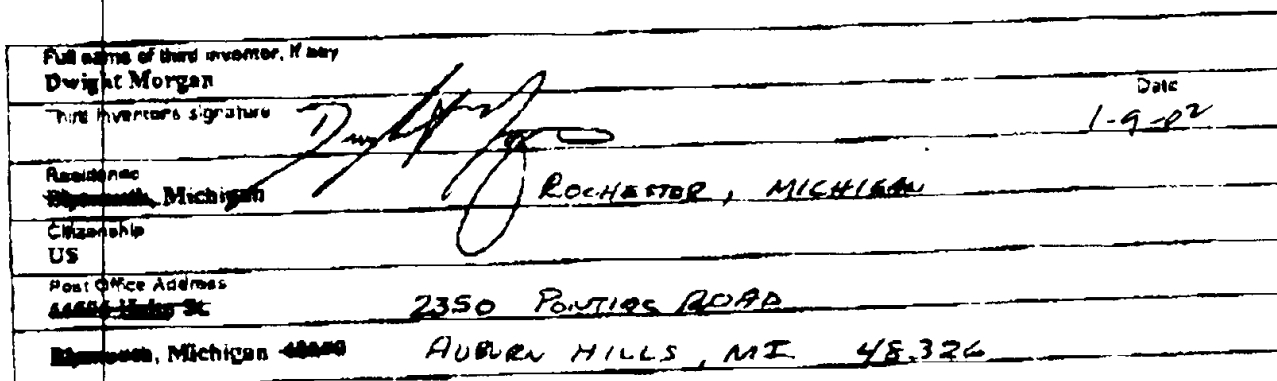 Full name of third inventor, if any
Dwight Morgan
Third inventor's signature
Date
1-9-02
Residence
Plymouth, Michigan ROCHESTER, MICHIGAN
Citizenship
US
Post Office Address
St. 2350 PONTIAC ROAD
Plymouth, Michigan AUBURN HILLS, MI 48326